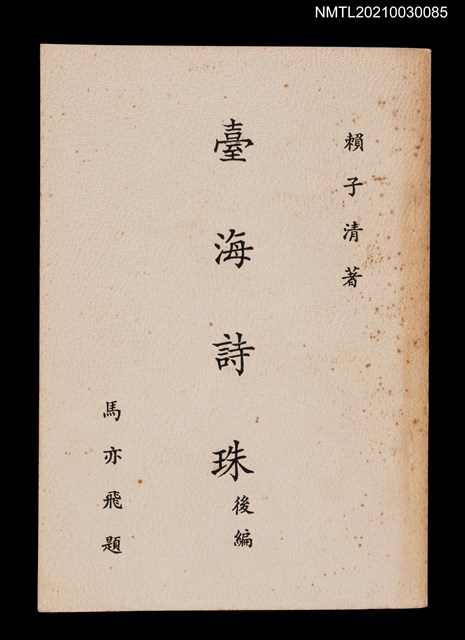 NMTL20210030085
賴子清著
臺海詩珠
後編
馬亦飛題